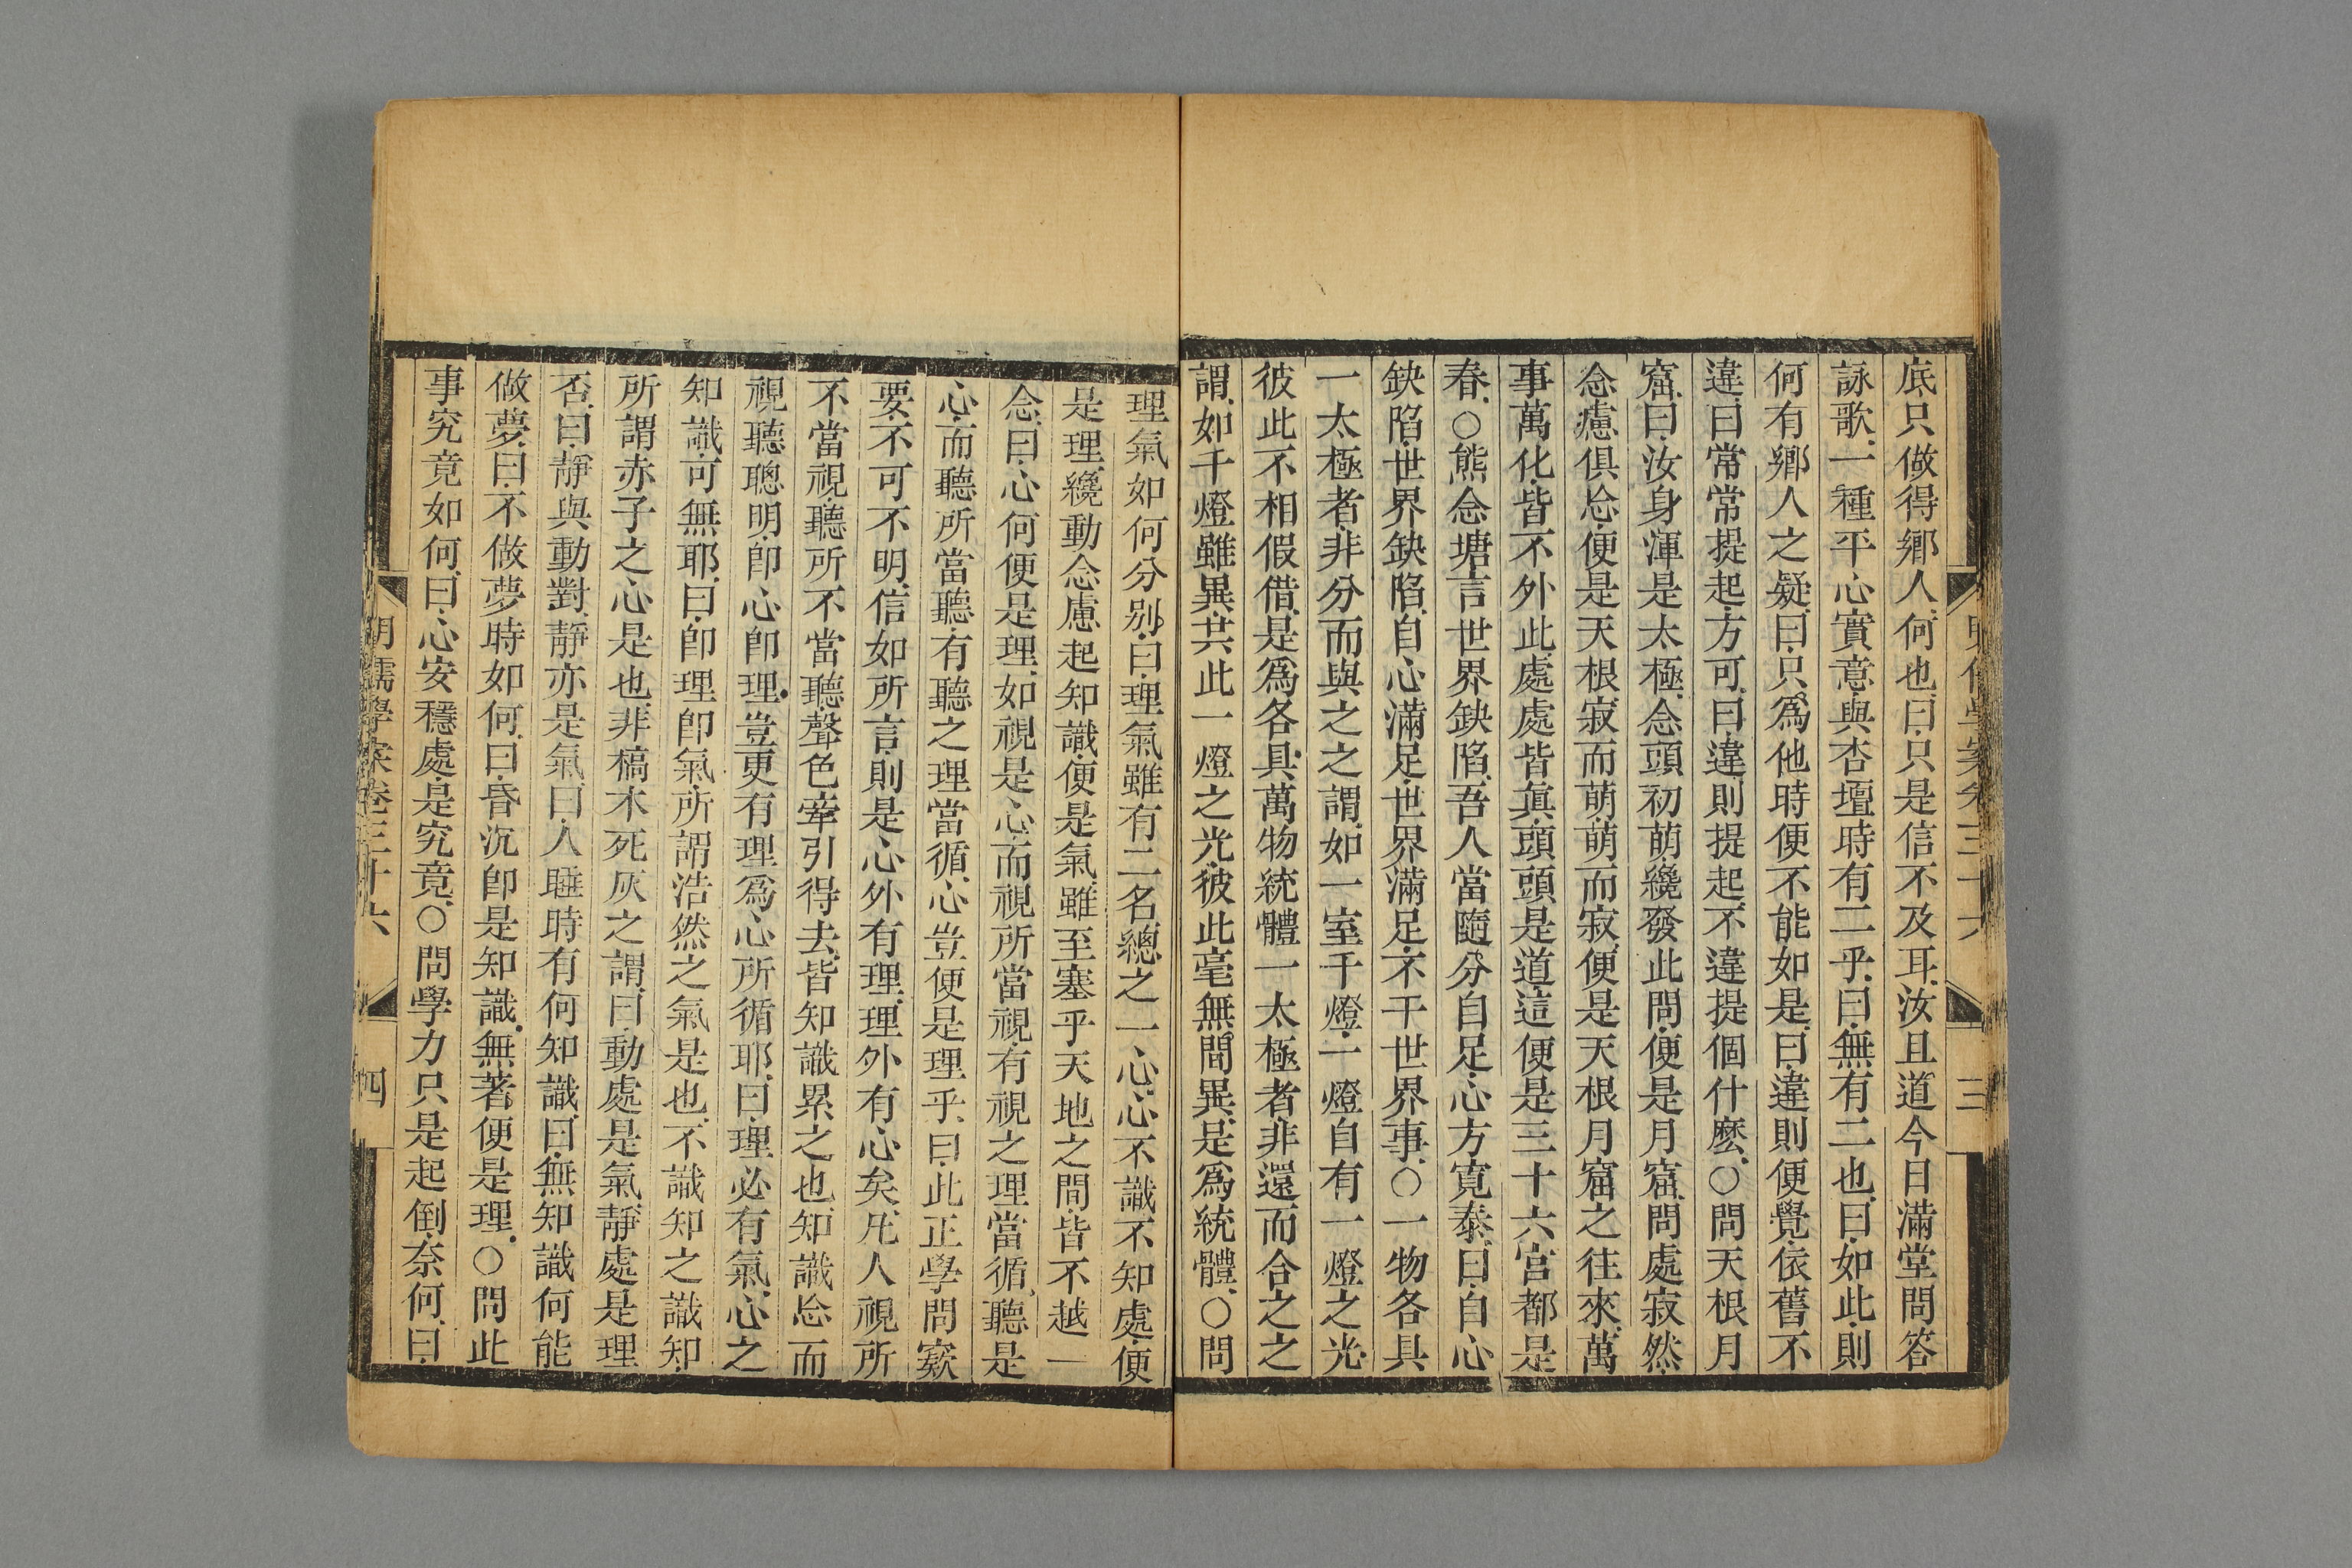 底只做得鄉人何也曰只是信不及耳汝且道今日滿堂問答
詠歌一種平心實意與杏壇時有二乎曰無有二也曰如此則
何有鄉人之疑曰只爲他時便不能如是曰違則便覺依舊不
違曰常常提起方可曰違則提起不違提個什麼○問天根月
窟曰汝身渾是太極念頭初萌纔發此問便是月窟問處寂然
念慮俱忘便是天根寂而萌萌而寂便是天根月窟之往來萬
事萬化皆不外此處處皆眞頭頭是道這便是三十六宮都是
春○熊念塘言世界缺陷吾人當隨分自足心方寬泰曰自心
缺陷世界缺陷自心滿足世界滿足不干世界事○一物各具
一太極者非分而與之之謂如一室千燈一燈自有一燈之光
彼此不相假借是爲各具萬物統體一太極者非還而合之之
謂如千燈雖異共此一燈之光彼此毫無間異是爲統體○問
理氣如何分別曰理氣雖有二名總之一心心不識不知處便
是理纔動念慮起知識便是氣雖至塞乎天地之間皆不越一
念曰心何便是理如視是心而視所當視有視之理當循聽是
心而聽所當聽有聽之理當循心豈便是理乎曰此正學問竅
要不可不明信如所言則是心外有理理外有心矣凡人視所
不當視聽所不當聽聲色牽引得去皆知識累之也知識忘而
視聽聰明卽心卽理豈更有理爲心所循耶曰理必有氣心之
知識可無耶曰卽理卽氣所謂浩然之氣是也不識知之識知
所謂赤子之心是也非槁木死灰之謂曰動處是氣靜處是理
否曰靜與動對靜亦是氣曰人睡時有何知識曰無知識何能
做夢曰不做夢時如何曰昏沉卽是知識無著便是理○問此
事究竟如何曰心安穩處是究竟○問學力只是起倒奈何曰
明儒學案卷三十六
四
三